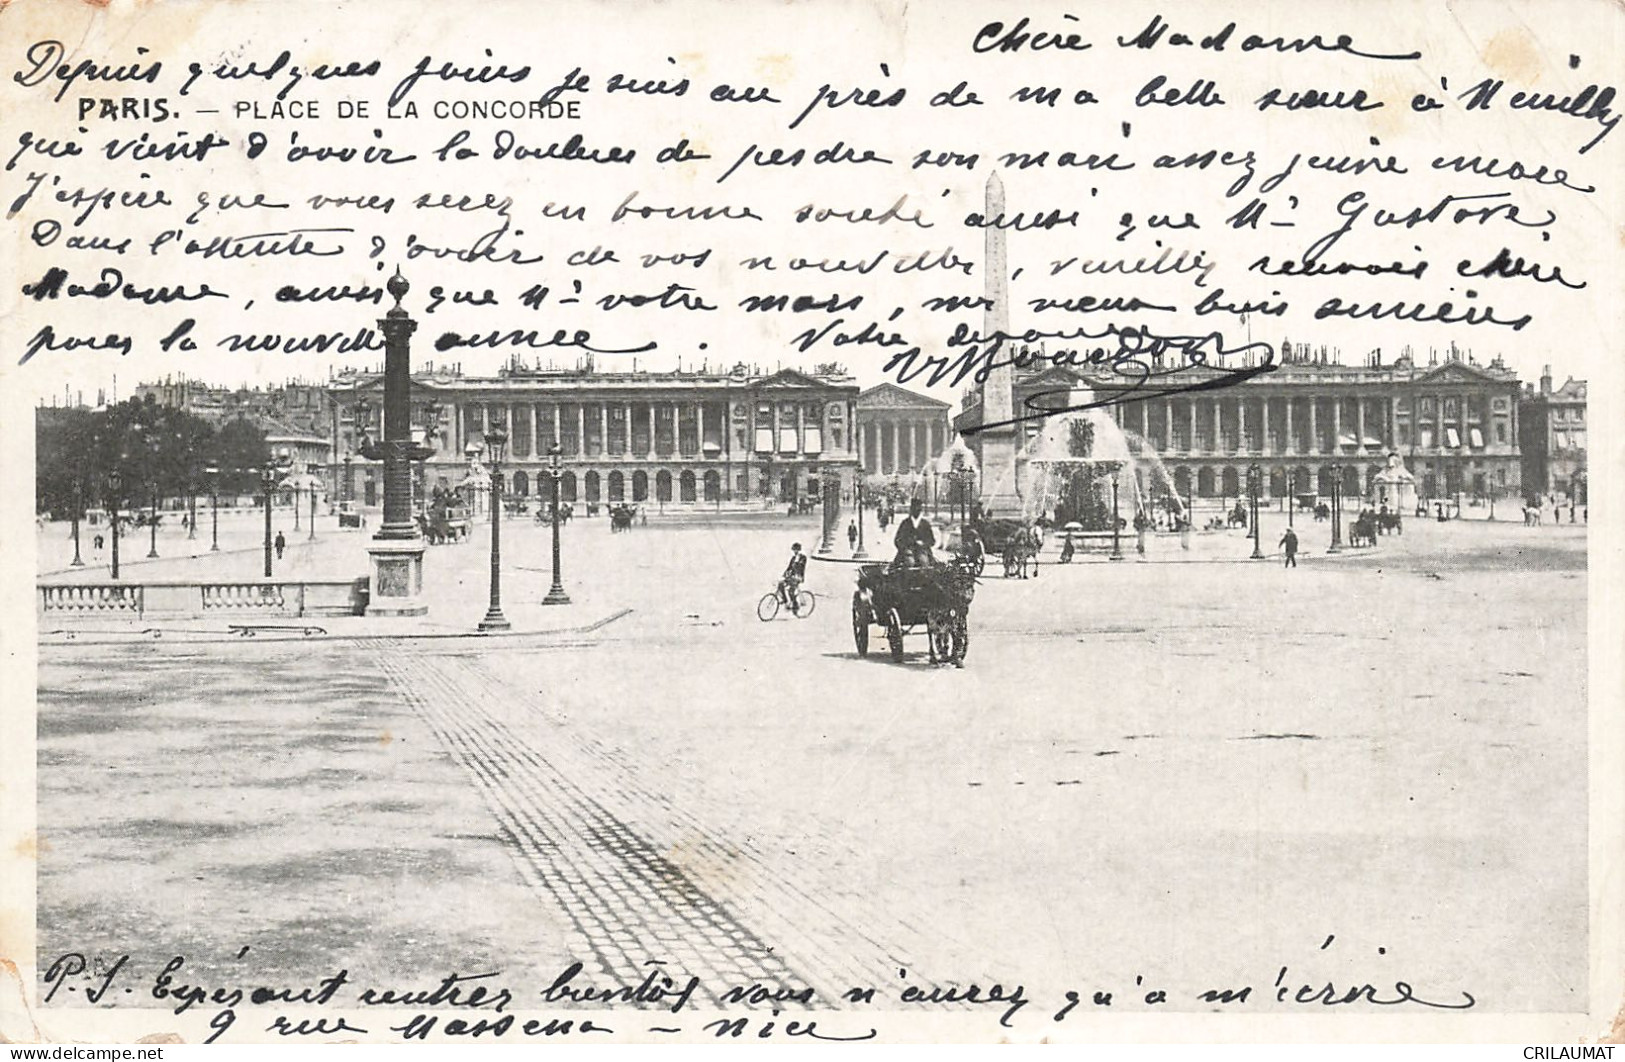 Chère Madame
Depuis quelques jours je suis au près de ma belle sœur à Neuilly
PARIS. — PLACE DE LA CONCORDE
qui vient d'avoir la douleur de perdre son mari assez jeune encore
J'espère que vous serez en bonne santé ainsi que Mr Gustave.
Dans l'attente d'avoir de vos nouvelles, veuillez recevoir chère
Madame, ainsi que Mr votre mari, mes vœux bien sincères
pour la nouvelle année. Votre dévouée
P.S. Espérant rentrer bientôt vous n'aurez qu'à m'écrire
9 rue Massena — Nice
CRILAUMAT